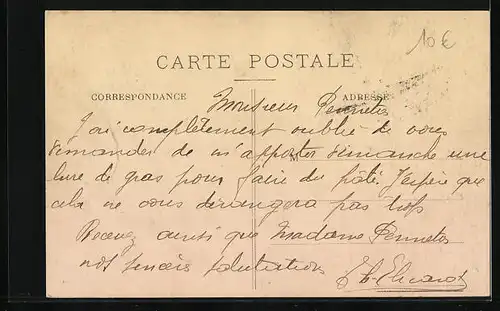 10€
CARTE POSTALE
CORRESPONDANCE
ADRESSE
Monsieur Pennetes
J'ai complètement oublié de vous
demander de m'apporter dimanche une
livre de gras pour faire du pâté. J'espère que
cela ne vous dérangera pas trop
Recevez ainsi que Madame Pennetes
nos sincères salutations